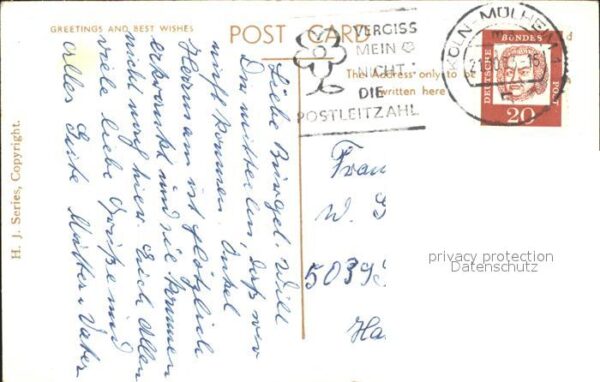 GREETINGS AND BEST WISHES
POST CARD
VERGISS
MEIN
NICHT
DIE
POSTLEITZAHL
KÖLN-MÜLHEIM 1
DEUTSCHE BUNDESPOST
20
The Address only to be
written here
H. J. Series, Copyright.
Liebe Bürgel. Will
Dir mitteilen, daß wir
nicht kommen. Onkel
Hermann ist plötzlich
erkrankt und sie kommen
nicht nach hier. Euch Allen
viele liebe Grüße und
alles Gute Mutter Vater
Frau
W.
5039
Ha
privacy protection
Datenschutz